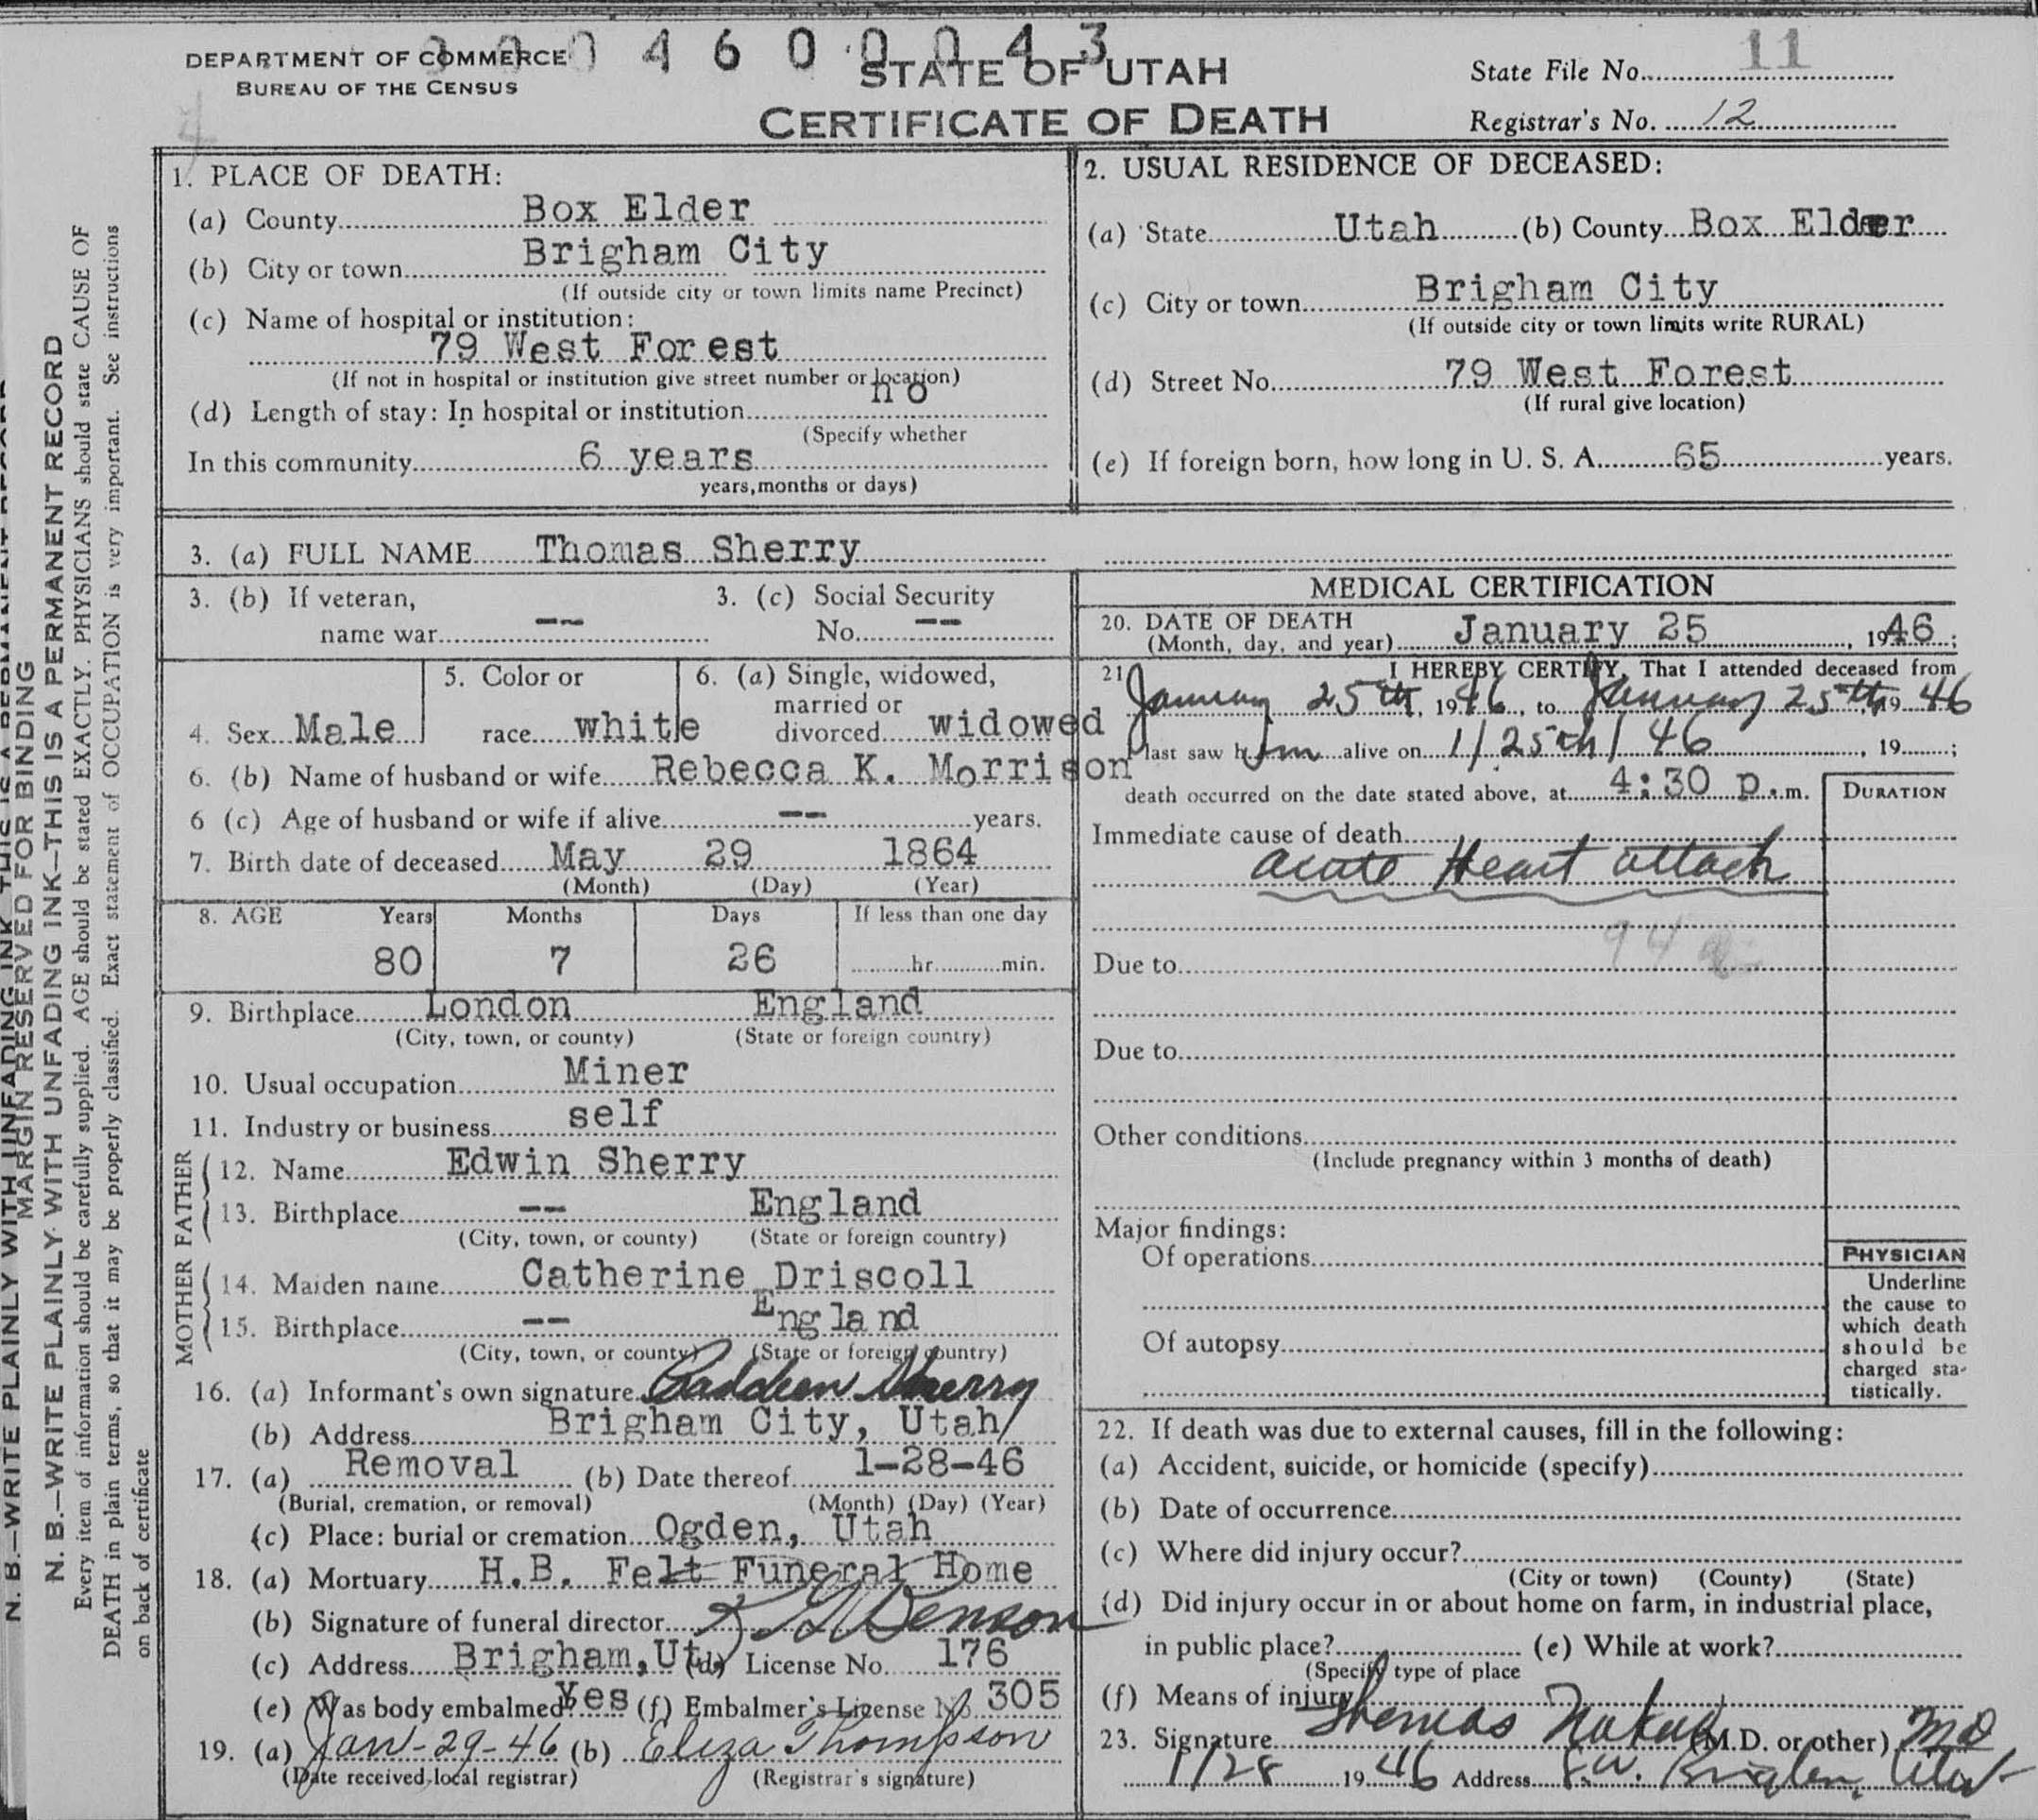 DEPARTMENT OF COMMERCE
BUREAU OF THE CENSUS
4600043
STATE OF UTAH
CERTIFICATE OF DEATH
State File No. 11
Registrar's No. 12
1. PLACE OF DEATH:
(a) County Box Elder
(b) City or town Brigham City
(If outside city or town limits name Precinct)
(c) Name of hospital or institution:
79 West Forest
(If not in hospital or institution give street number or location)
(d) Length of stay: In hospital or institution no
(Specify whether
In this community 6 years
years, months or days)
2. USUAL RESIDENCE OF DECEASED:
(a) State Utah (b) County Box Elder
(c) City or town Brigham City
(If outside city or town limits write RURAL)
(d) Street No. 79 West Forest
(If rural give location)
(e) If foreign born, how long in U. S. A. 65 years.
3. (a) FULL NAME Thomas Sherry
3. (b) If veteran,
name war --
3. (c) Social Security
No. --
4. Sex Male
5. Color or
race white
6. (a) Single, widowed,
married or
divorced widowed
6. (b) Name of husband or wife Rebecca K. Morrison
6 (c) Age of husband or wife if alive -- years.
7. Birth date of deceased May 29 1864
(Month) (Day) (Year)
8. AGE Years Months Days If less than one day
80 7 26 hr. min.
9. Birthplace London England
(City, town, or county) (State or foreign country)
10. Usual occupation Miner
11. Industry or business self
FATHER
12. Name Edwin Sherry
13. Birthplace -- England
(City, town, or county) (State or foreign country)
MOTHER
14. Maiden name Catherine Driscoll
15. Birthplace -- England
(City, town, or county) (State or foreign country)
16. (a) Informant's own signature Sherry
(b) Address Brigham City, Utah
17. (a) Removal (b) Date thereof 1-28-46
(Burial, cremation, or removal) (Month) (Day) (Year)
(c) Place: burial or cremation Ogden, Utah
18. (a) Mortuary H.B. Felt Funeral Home
(b) Signature of funeral director Benson
(c) Address Brigham, Ut. (d) License No. 176
(e) Was body embalmed? yes (f) Embalmer's License No. 305
19. (a) Jan-29-46 (b) Eliza Thompson
(Date received local registrar) (Registrar's signature)
MEDICAL CERTIFICATION
20. DATE OF DEATH
(Month, day, and year) January 25, 1946;
21. I HEREBY CERTIFY, That I attended deceased from
January 25th, 1946, to January 25th, 1946
last saw him alive on 1/25th/46, 19 ;
death occurred on the date stated above, at 4:30 p.m.
DURATION
Immediate cause of death
acute Heart attack
94
Due to
Due to
Other conditions
(Include pregnancy within 3 months of death)
Major findings:
Of operations
Of autopsy
PHYSICIAN
Underline
the cause to
which death
should be
charged sta-
tistically.
22. If death was due to external causes, fill in the following:
(a) Accident, suicide, or homicide (specify)
(b) Date of occurrence
(c) Where did injury occur?
(City or town) (County) (State)
(d) Did injury occur in or about home on farm, in industrial place,
in public place? (e) While at work?
(Specify type of place
(f) Means of injury
23. Signature Thomas (M.D. or other) MD
1/28 1946 Address Utah
MARGIN RESERVED FOR BINDING
N. B.—WRITE PLAINLY WITH UNFADING INK—THIS IS A PERMANENT RECORD
Every item of information should be carefully supplied. AGE should be stated EXACTLY. PHYSICIANS should state CAUSE OF
DEATH in plain terms, so that it may be properly classified. Exact statement of OCCUPATION is very important. See instructions
on back of certificate